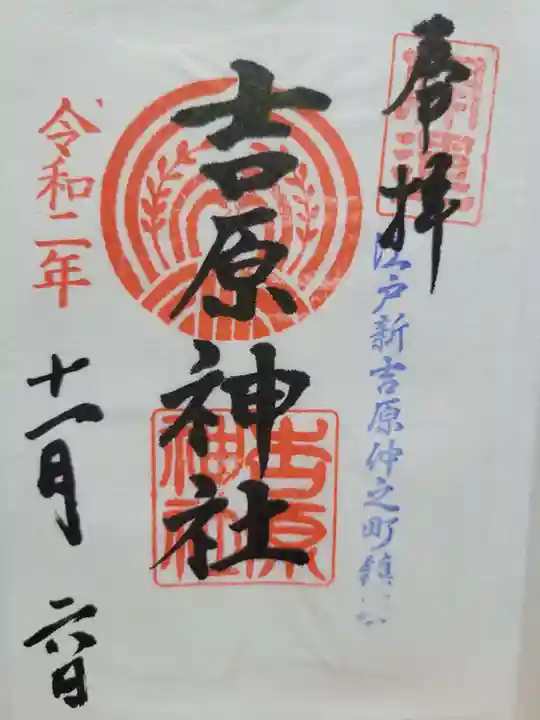 奉拝
開運
江戸新吉原仲之町鎮
吉原神社
吉原
神社
令和二年
十一月六日